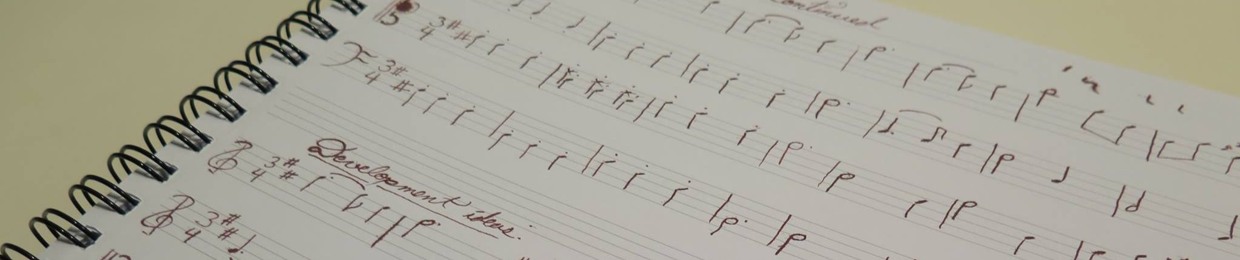 continued
3
4
3
4
Development ideas.
3
4
3
4